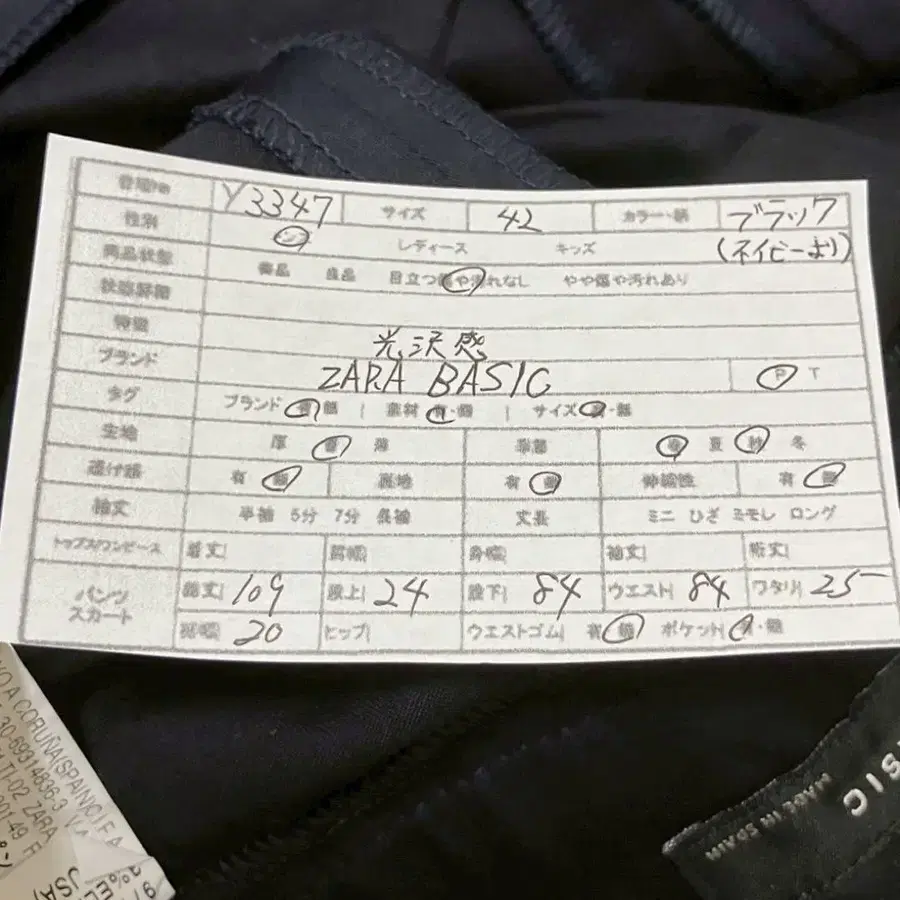 管理No Y3347 サイズ 42 カラー・柄 ブラック
(ネイビーより)
性別 メンズ レディース キッズ
商品状態 美品 良品 目立つ傷や汚れなし やや傷や汚れあり
状態詳細
特徴 光沢感
ブランド ZARA BASIC P T
タグ ブランド 有・無 | 素材 有・無 | サイズ 有・無
生地 厚 普 薄 季節 春 夏 秋 冬
透け感 有 無 裏地 有 無 伸縮性 有 無
袖丈 半袖 5分 7分 長袖 丈長 ミニ ひざ ミモレ ロング
トップス/ワンピース 着丈| 肩幅| 身幅| 袖丈| 裄丈|
パンツ スカート 総丈| 109 股上| 24 股下| 84 ウエスト| 84 ワタリ| 25
裾幅| 20 ヒップ| ウエストゴム| 有・無 ポケット| 有・無
A CORUÑA(SPAIN)
30-69314836-3
TI-02 ZARA
JSA
SIC
MADE IN SPAIN